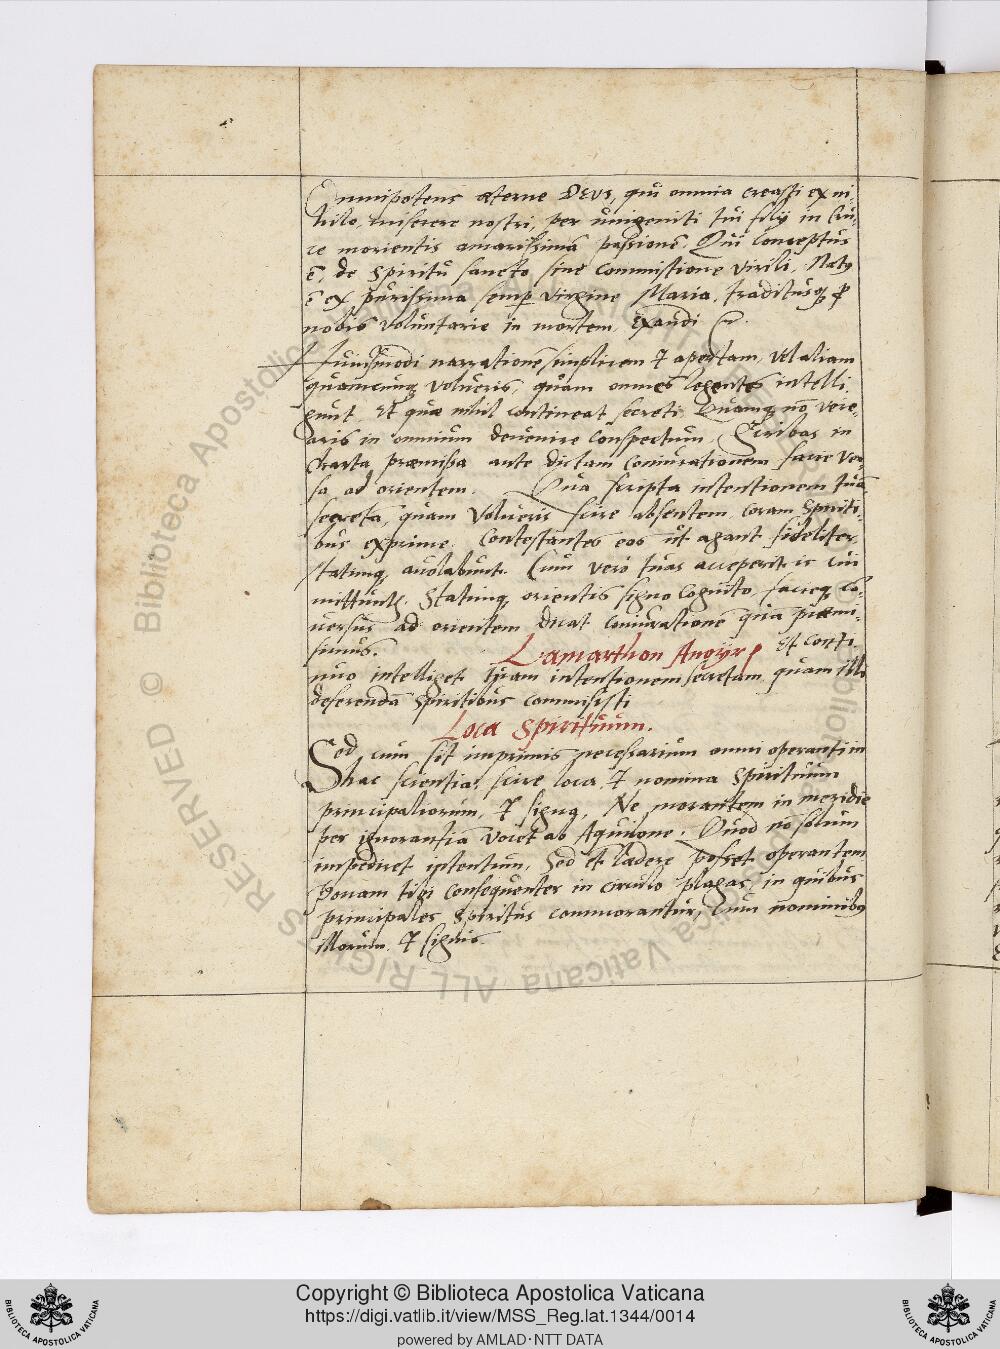 Omnipotens æterne DEUS, qui omnia creasti ex ni-
hilo, miserere nostri, per unigeniti tui filij in Cru-
ce morientis amarissimã passionẽ. Qui conceptus
ẽ, de Spiritu sancto sine commistione virili, Natꝯ
ẽ ex purissima semp virgine Maria, traditusqꝫ ꝓ
nobis voluntarie in mortem, Exaudi
Huiusmodi narrationẽ simplicem & apertam, vel aliam
quamcunqꝫ volueris, quam omnes legentes intelli
gunt, Et quæ nihil contineat secreti, Quamqꝫ nõ vere-
aris in omnium devenire conspectum, Scribas in
Charta præmissa ante dictam coniurationem facie ver-
sa ad orientem. Qua scripta intentionem tuã
secretã, quam volueris scire absentem, coram Spiriti-
bus exprime. Contestantes eos ut agant fideliter,
statimqꝫ avolabunt. Cum vero tuas acceperit is cui
mittuntꝭ. Statimqꝫ orientis signo cognito, facieqꝫ co-
versus ad orientem dicat coniurationẽ quã præmi-
simus. Lamarthon Et conti
nuo intelliget tuam intentionem secretam quam illi
deferendã Spiritibus commisisti
Loca Spirituum.
Sed cum sit imprimis necessarium omni operanti in
hac scientia, scire loca, & nomina Spirituum
principaliorum, & signa, Ne morantem in meridie
per ignorantiã vocet ab Aquilone. Quod nõ solum
impediret intentum, Sed et lædere posset operantem
Ponam tibi consequenter in circulo plagas, in quibus
principales Spiritus commorantur, Cum nominibꝯ
illorum, & signis.
© Biblioteca Apostolica Vaticana ALL RIGHTS RESERVED
Copyright © Biblioteca Apostolica Vaticana
https://digi.vatlib.it/view/MSS_Reg.lat.1344/0014
powered by AMLAD·NTT DATA
BIBLIOTECA APOSTOLICA VATICANA
BIBLIOTECA APOSTOLICA VATICANA